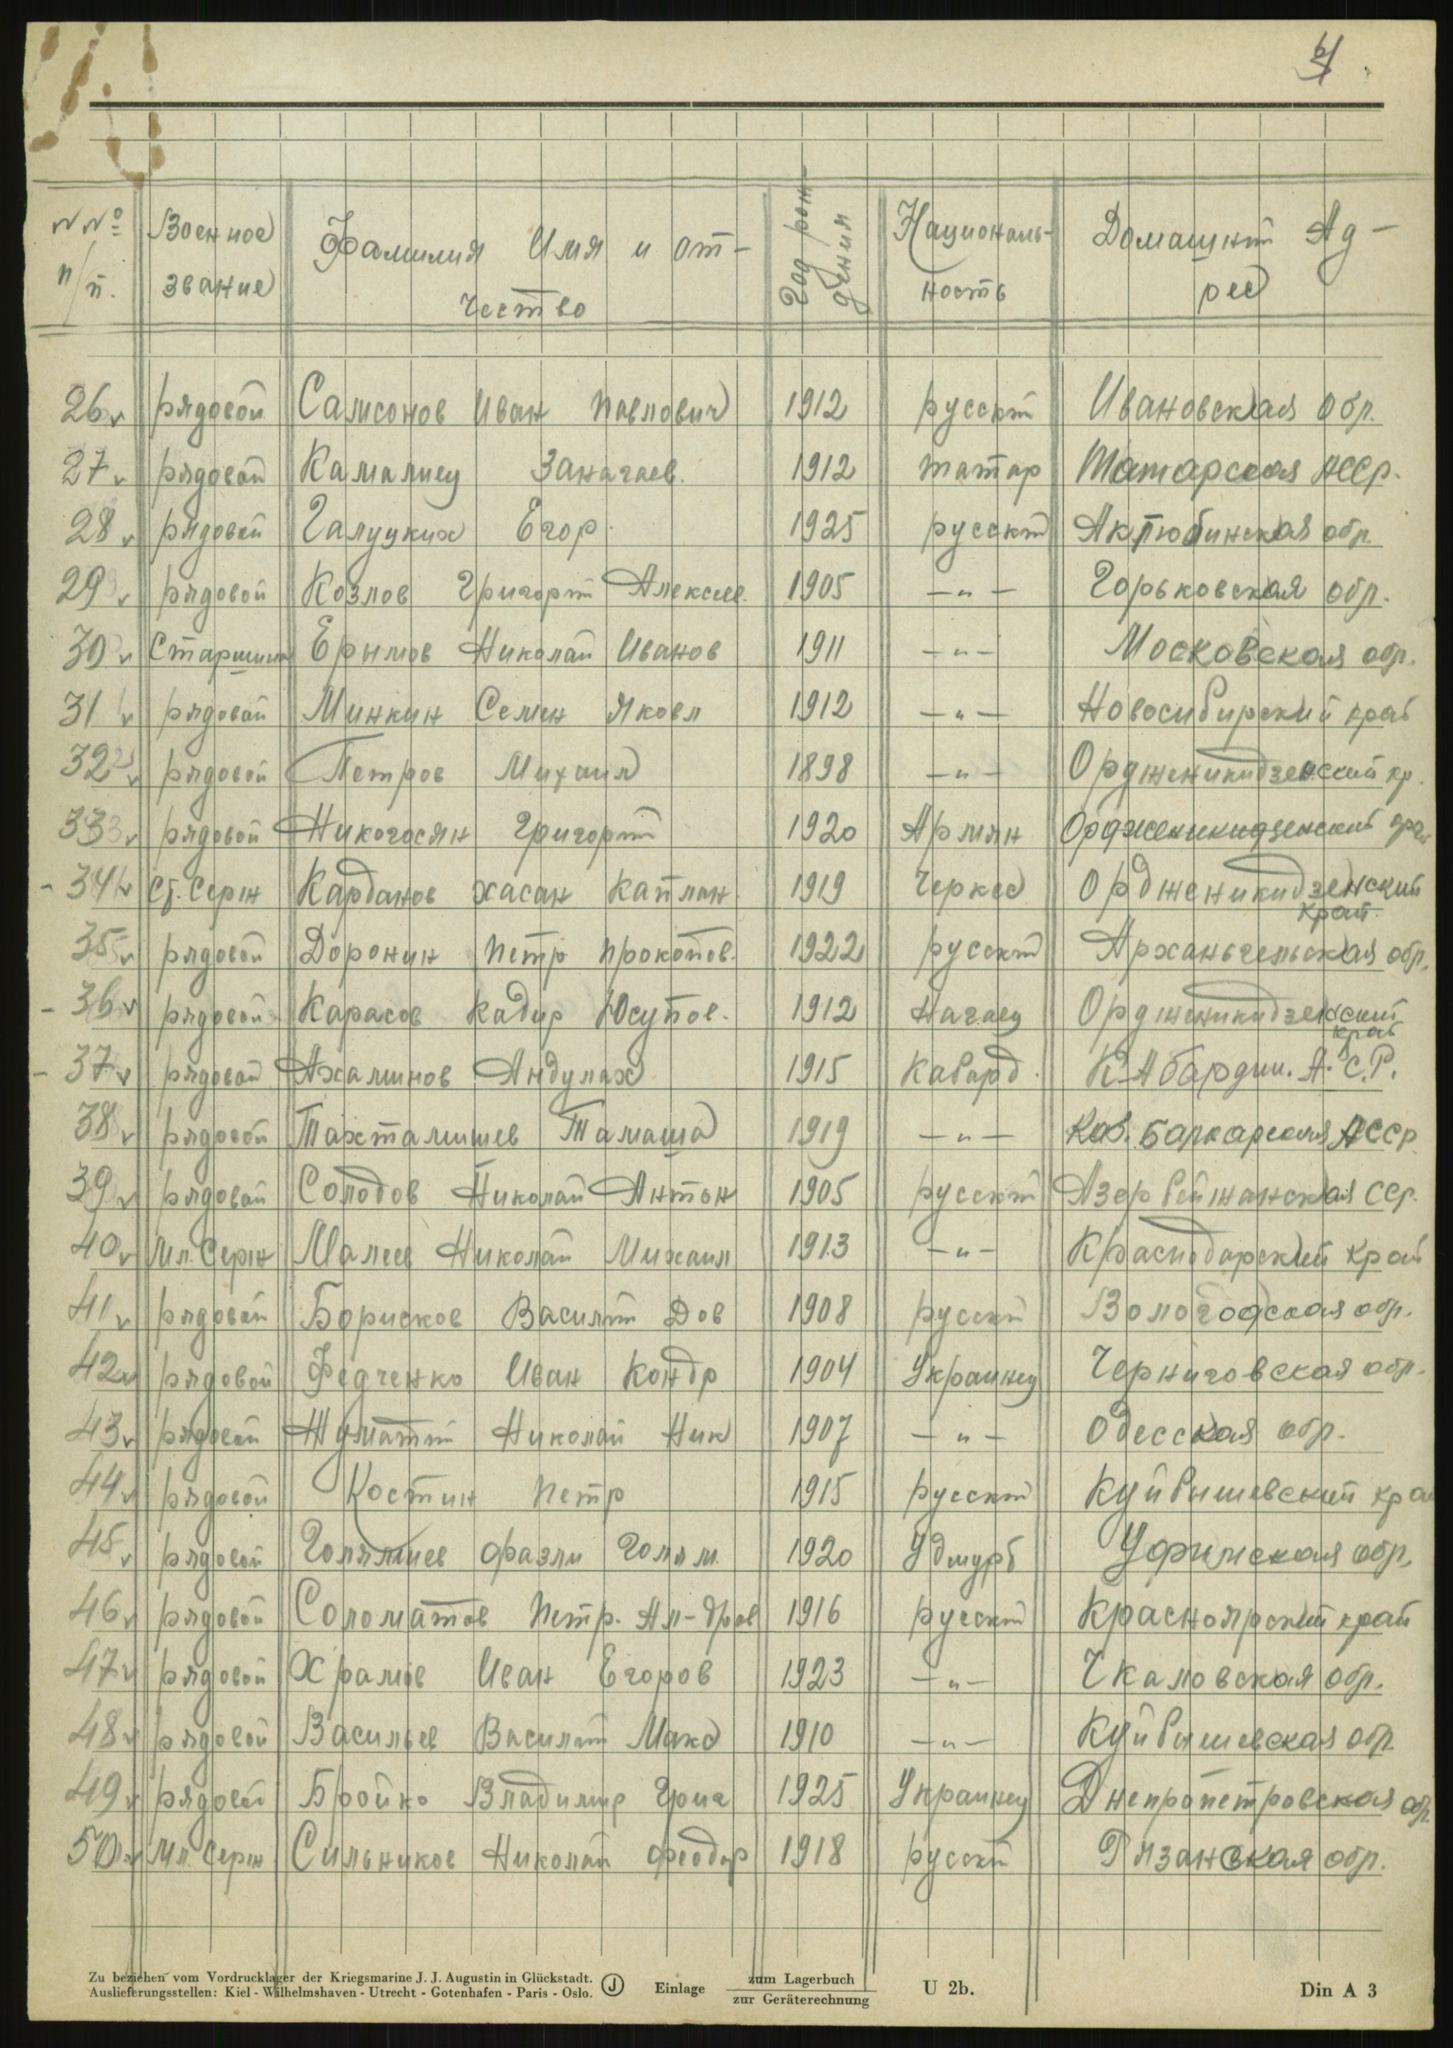 №№ п/п. Военное звание Фамилия Имя и отчество Год рождения Националь-ность Домашний Ад-рес
26 рядовой Самсонов Иван Павлович 1912 русский Ивановская обр.
27 рядовой Камалиец Заначаев. 1912 татар Татарская АССР.
28 рядовой Галуцких Егор. 1925 русский Актюбинская обр.
29 рядовой Козлов Григорий Алексее. 1905 —"— Горьковская обр.
30 Старшина Ерымов Николай Иванов 1911 —"— Московская обр.
31 рядовой Минкин Семен Яковл 1912 —"— Новосибирский край
32 рядовой Петров Михаил 1898 —"— Орджникидзенский кр.
33 рядовой Никогосян Григорий 1920 Армян Орджникидзенский
- 34 Ст. Серж Карданов Хасан Каплан. 1919 Черкес Орджникидзенский край.
35 рядовой Доронин Петр Прокопов. 1922 русский Арханьгельская обр.
- 36 рядовой Карасов Кадир Юсупов. 1912 Нагаец Орджникидзенский край
- 37 рядовой Ахаминов Андулах 1915 Кабард. К-Абардин. А.С.Р.
38 рядовой Тахтамишев Тамаша 1919 —"— Каб. Балкарская АССР.
39 рядовой Солодов Николай Антон 1905 русский Азербейжанская ССР.
40 Мл. Серж Малеев Николай Михаил 1913 —"— Краснодарский край
41 рядовой Борисков Василий Дов 1908 русский Вологодская обр.
42 рядовой Федченко Иван Кондр 1904 Украинец Черниговская обр.
43 рядовой Жуматий Николай Ник 1907 —"— Одесская обр.
44 рядовой Костин Петр 1915 русский Куйбишевский край
45 рядовой Голямиев Фазли Голям. 1920 Удмурт Уфимская обр.
46 рядовой Соломатов Петр. Ал-дров 1916 русский Красноярский край
47 рядовой Храмов Иван Егоров 1923 —"— Чкаловская обр.
48 рядовой Васильев Василий Макс 1910 —"— Куйбишевская обр.
49 рядовой Бройко Владимир Григ 1925 Украинец Днепропетровская обр.
50 Мл. Серж Сильников Николай Феодор 1918 русский Рязанская обр.
Zu beziehen vom Vordrucklager der Kriegsmarine J. J. Augustin in Glückstadt.
Auslieferungsstellen: Kiel - Wilhelmshaven - Utrecht - Gotenhafen - Paris - Oslo.
J Einlage zum Lagerbuch
zur Geräterechnung
U 2b. Din A 3